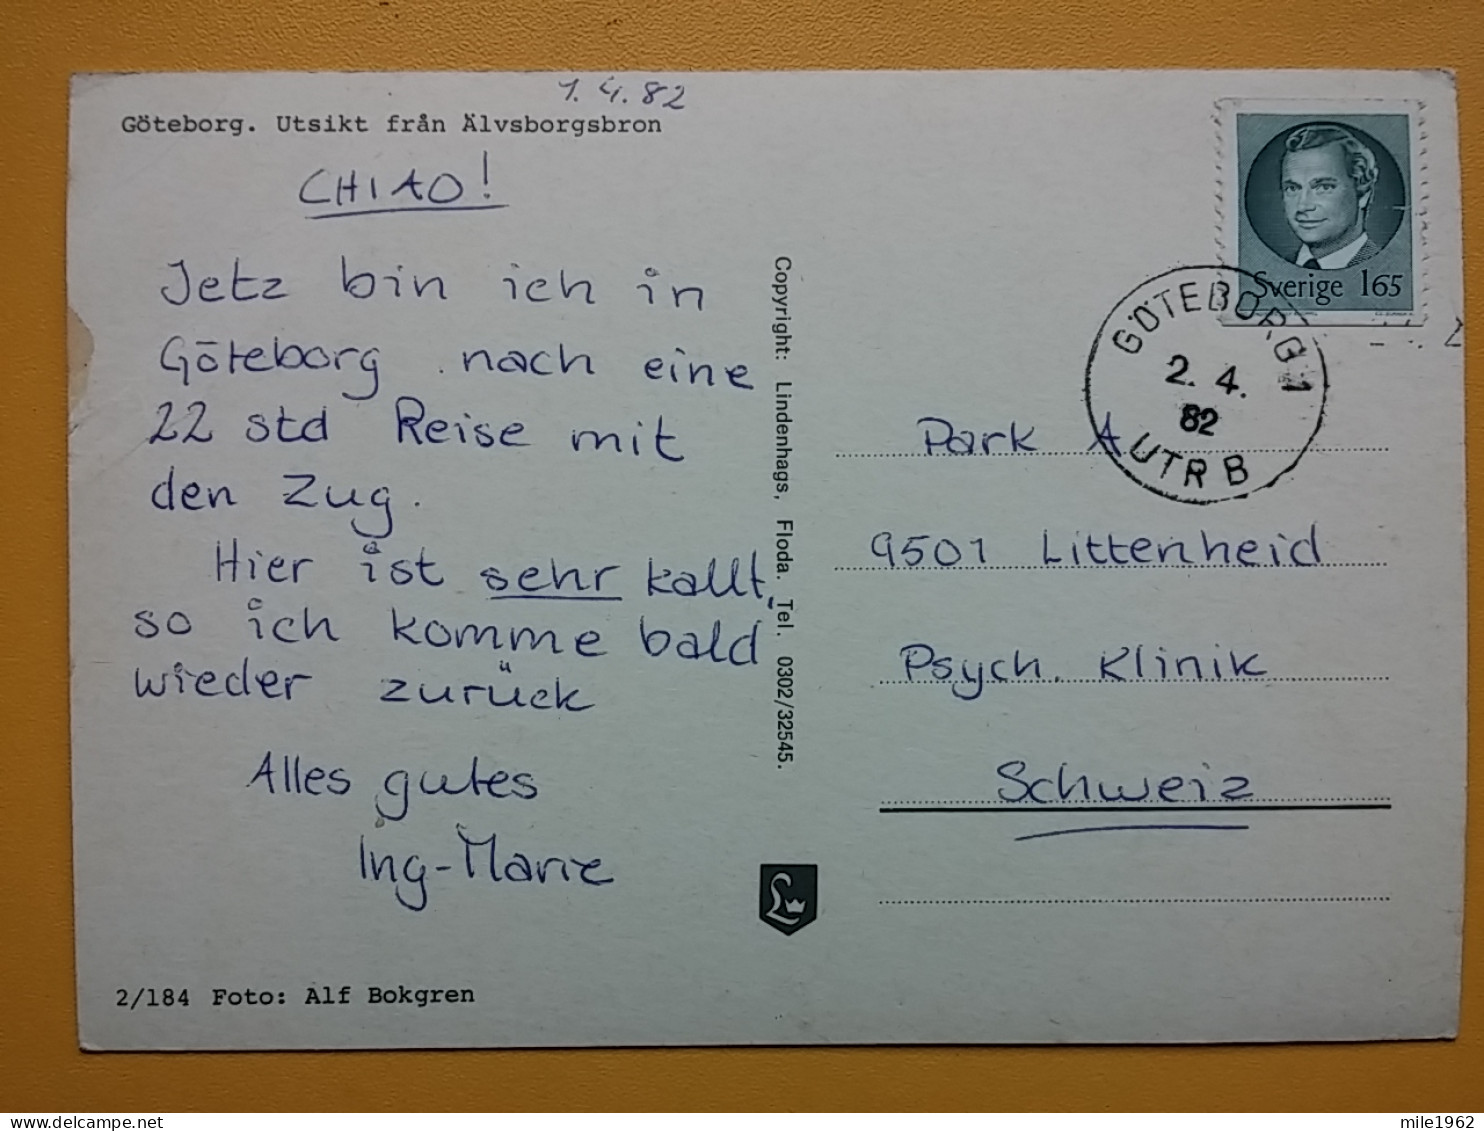 1.4.82
Göteborg. Utsikt från Älvsborgsbron
CHIAO!
Jetz bin ich in
Göteborg nach eine
22 std Reise mit
den Zug.
Hier ist sehr kallt,
so ich komme bald
wieder zurück
Alles gutes
Ing-Marie
2/184 Foto: Alf Bokgren
Copyright: Lindenhags, Floda. Tel. 0302/32545.
L
Sverige 165
GÖTEBORG 1
2. 4.
82
UTR B
Park A
9501 Littenheid
Psych. Klinik
Schweiz
mile1962